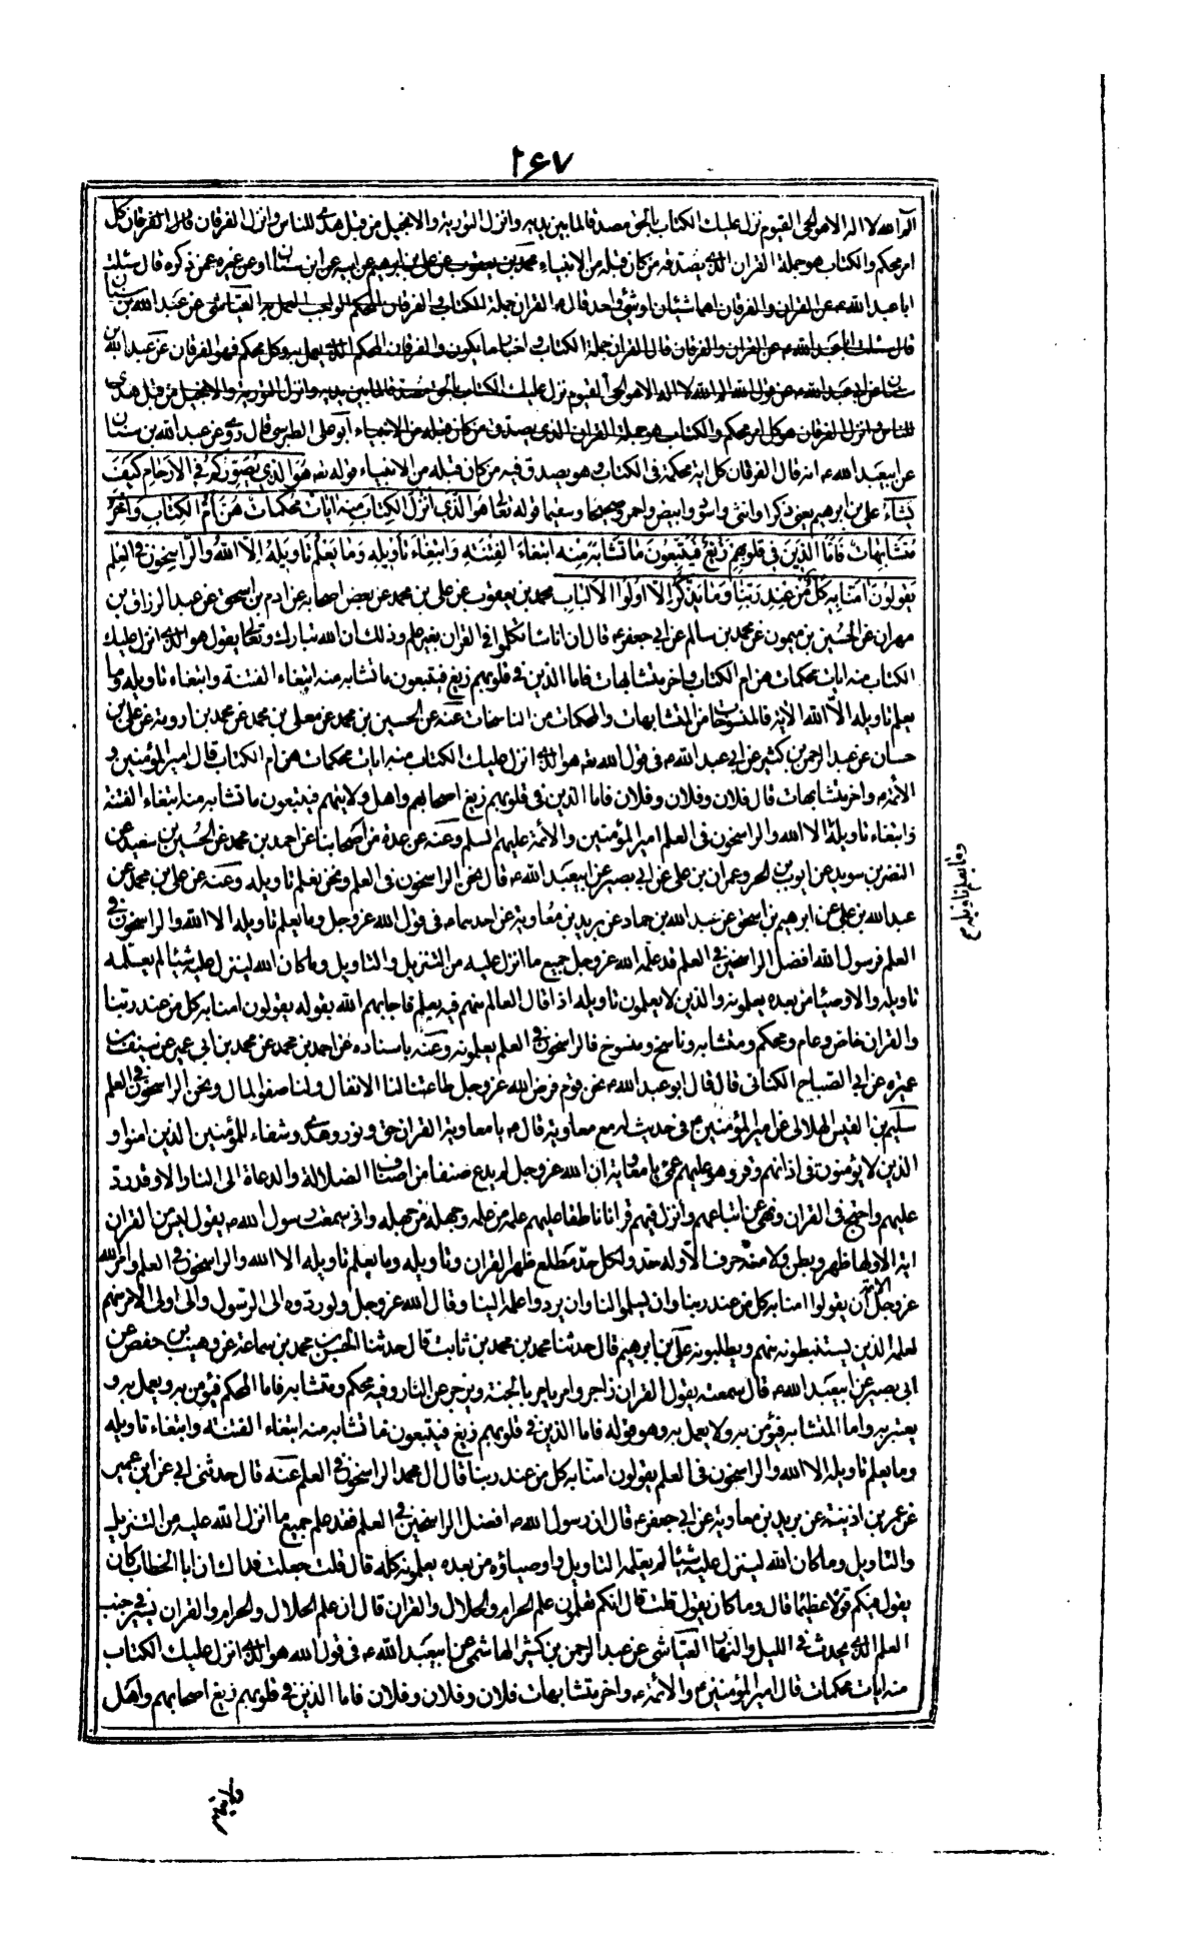 ٢٦٧
الم الله لا اله الا هو الحي القيوم نزل عليك الكتاب بالحق مصدقا لما بين يديه وانزل التورية والانجيل من قبل هدى للناس وانزل الفرقان قال الفرقان كل
امر محكم والكتاب هو جملة القران الذي يصدق فيه من كان قبله من الانبياء محمد بن يعقوب عن علي بن ابرهيم عن ابيه عن ابن سنان او عن غيره عمن ذكره قال سئلت
ابا عبد الله ع عن القران والفرقان اهما شيئان او شئ واحد قال ع القران جملة الكتاب والفرقان المحكم الواجب العمل به العياشي عن عبد الله بن سنان
قال سئلت ابا عبد الله ع عن القران والفرقان قال القران جملة الكتاب واخبار ما يكون والفرقان المحكم الذي يعمل به وكل محكم فهو الفرقان عن عبد الله بن
سنان عن ابي عبد الله ع عن قول الله الم الله لا اله الا هو الحي القيوم نزل عليك الكتاب بالحق مصدقا لما بين يديه وانزل التورية والانجيل من قبل هدى
للناس وانزل الفرقان هو كل امر محكم والكتاب هو جملة القران الذي يصدق من كان قبله من الانبياء ابو علي الطبرسي قال روى عن عبد الله بن سنان
عن ابيعبد الله ع انه قال الفرقان كل اية محكمة في الكتاب وهو يصدق فيه من كان قبله من الانبياء قوله تع هو الذي يصوركم في الارحام كيف
يشاء علي بن ابرهيم يعني ذكرا وانثى واسود وابيض واحمر وصحيحا وسقيما قوله تعا هو الذي انزل الكتاب منه ايات محكمات هن ام الكتاب واخر
متشابهات فاما الذين في قلوبهم زيغ فيتبعون ما تشابه منه ابتغاء الفتنة وابتغاء تاويله وما يعلم تاويله الا الله والراسخون في العلم
يقولون امنا به كل من عند ربنا وما يذكر الا اولوا الالباب محمد بن يعقوب عن علي بن محمد عن بعض اصحابه عن ادم بن اسحق عن عبد الرزاق بن
مهران عن الحسين بن ميمون عن محمد بن سالم عن ابي جعفر ع قال ان اناسا تكلموا في القران بغير علم وذلك ان الله تبارك وتعا يقول هو الذي انزل عليك
الكتاب منه ايات محكمات هن ام الكتاب واخر متشابهات فاما الذين في قلوبهم زيغ فيتبعون ما تشابه منه ابتغاء الفتنة وابتغاء تاويله وما
يعلم تاويله الا الله الاية فالمنسوخات من المتشابهات والمحكمات من الناسخات عنه عن الحسين بن محمد عن معلى بن محمد عن محمد بن اورمة عن علي بن
حسان عن عبد الرحمن بن كثير عن ابي عبد الله ع في قول الله تع هو الذي انزل عليك الكتاب منه ايات محكمات هن ام الكتاب قال امير المؤمنين و
الائمة ع واخر متشابهات قال فلان وفلان وفلان فاما الذين في قلوبهم زيغ اصحابهم واهل ولايتهم فيتبعون ما تشابه منه ابتغاء الفتنة
وابتغاء تاويله الا الله والراسخون في العلم امير المؤمنين والائمة عليهم السلم وعنه عن عدة من اصحابنا عن احمد بن محمد عن الحسين بن سعيد عن
النضر بن سويد عن ايوب بن الحر وعمران بن علي عن ابي بصير عن ابيعبد الله ع قال نحن الراسخون في العلم ونحن نعلم تاويله وعنه عن علي بن محمد عن
عبد الله بن علي عن ابرهيم بن اسحق عن عبد الله بن حماد عن بريد بن معاوية عن احدهما ع في قول الله عز وجل وما يعلم تاويله الا الله والراسخون في
العلم فرسول الله افضل الراسخين في العلم قد علمه الله عز وجل جميع ما انزل عليه من التنزيل والتاويل وما كان الله لينزل عليه شيئا لم يعلمه
تاويله والاوصياء من بعده يعلمونه والذين لا يعلمون تاويله اذا قال العالم منهم فيه بعلم فاجابهم الله بقوله يقولون امنا به كل من عند ربنا
والقران خاص وعام ومحكم ومتشابه وناسخ ومنسوخ فالراسخون في العلم يعلمونه وعنه باسناده عن احمد بن محمد عن محمد بن ابي عمير عن سيف بن
عميره عن ابي الصباح الكناني قال قال ابو عبد الله ع نحن قوم فرض الله عز وجل طاعتنا لنا الانفال ولنا صفوا المال ونحن الراسخون في العلم
سليم بن القيس الهلالي عن امير المؤمنين ع في حديث له مع معاوية قال ع يا معاوية القران حق ونور وهدى وشفاء للمؤمنين الذين امنوا و
الذين لا يؤمنون في اذانهم وقر وهو عليهم عمى يا معاوية ان الله عز وجل لم يدع صنفا من اصناف الضلالة والدعاة الى النار الا وقد رد
عليهم واحتج في القران ونهى عن اتباعهم وانزل فيهم قرانا ناطقا عليهم علمه من علمه وجهله من جهله واني سمعت رسول الله ص يقول ليس من القران
اية الا ولها ظهر وبطن ولا منه حرف الا وله حد ولكل حد مطلع ظهر القران وتاويله وما يعلم تاويله الا الله والراسخون في العلم وامر الله
عز وجل الامة ان يقولوا امنا به كل من عند ربنا وان يسلموا لنا وان يردوا علمه الينا وقال الله عز وجل ولو ردوه الى الرسول والى اولي الامر منهم
لعلمه الذين يستنبطونه منهم ويطلبونه علي بن ابرهيم قال حدثنا محمد بن محمد بن ثابت قال حدثنا الحسن بن محمد بن سماعة عن وهيب بن حفص عن
ابي بصير عن ابيعبد الله ع قال سمعته يقول القران زاجر وامر يامر بالجنة ويزجر عن النار وفيه محكم ومتشابه فاما المحكم فيؤمن به ويعمل به و
يعتبر به واما المتشابه فيؤمن به ولا يعمل به وهو قوله فاما الذين في قلوبهم زيغ فيتبعون ما تشابه منه ابتغاء الفتنة وابتغاء تاويله
وما يعلم تاويله الا الله والراسخون في العلم يقولون امنا به كل من عند ربنا قال ال محمد الراسخون في العلم عنه قال حدثني ابي عن ابن عمير
عن عمر بن اذينة عن بريد بن معاوية عن ابي جعفر ع قال ان رسول الله ص افضل الراسخين في العلم فقد علم جميع ما انزل الله عليه من التنزيل
والتاويل وما كان الله لينزل عليه شيئا لم يعلمه التاويل واوصياؤه من بعده يعلمونه كله قال قلت جعلت فداك ان ابا الخطاب كان
يقول فيكم قولا عظيما قال وما كان يقول قلت قال انكم تعلمون علم الحرام والحلال والقران قال ان علم الحلال والحرام والقران يسير في جنب
العلم الذي يحدث في الليل والنهار العياشي عن عبد الرحمن بن كثير الهاشمي عن ابيعبد الله ع في قول الله هو الذي انزل عليك الكتاب
منه ايات محكمات قال امير المؤمنين ع والائمة ع واخر متشابهات فلان وفلان وفلان فاما الذين في قلوبهم زيغ اصحابهم واهل
وما يعلم تاويله م
ولايتهم